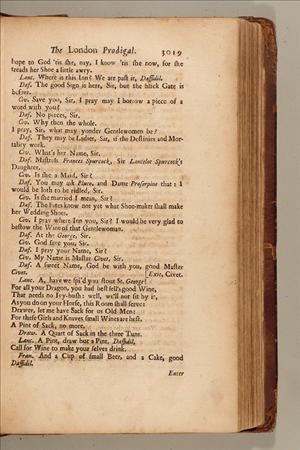 The London Prodigal. 3019
hope to God 'tis she, nay, I know 'tis she now, for she
treads her Shoe a little awry.
Lanc. Where is this Inn? We are past it, Daffidil.
Daf. The good Sign is here, Sir, but the black Gate is
before.
Civ. Save you, Sir, I pray may I borrow a piece of a
word with you?
Daf. No pieces, Sir.
Civ. Why then the whole.
I pray, Sir, what may yonder Gentlewomen be?
Daf. They may be Ladies, Sir, if the Destinies and Mor-
tality work.
Civ. What's her Name, Sir.
Daf. Mistress Frances Spurcock, Sir Lancelot Spurcock's
Daughter.
Civ. Is she a Maid, Sir?
Daf. You may ask Pluto, and Dame Proserpine that: I
would be loth to be ridled, Sir.
Civ. Is she married I mean, Sir?
Daf. The Fates know not yet what Shoe-maker shall make
her Wedding Shoes.
Civ. I pray where Inn you, Sir? I would be very glad to
bestow the Wine of that Gentlewoman.
Daf. At the George, Sir.
Civ. God save you, Sir.
Daf. I pray your Name, Sir?
Civ. My Name is Master Civet, Sir.
Daf. A sweet Name, God be with you, good Master
Civet. [Exit, Civet.
Lanc. A, have we spi'd you stout St. George?
For all your Dragon, you had best sell's good Wine,
That needs no Ivy-bush: well, we'll not sit by it,
As you do on your Horse, this Room shall serve:
Drawer, let me have Sack for us Old Men:
For these Girls and Knaves small Wines are best.
A Pint of Sack, no more.
Draw. A Quart of Sack in the three Tuns.
Lanc. A Pint, draw but a Pint, Daffidil,
Call for Wine to make your selves drink.
Fran. And a Cup of small Beer, and a Cake, good
Daffidil.
Enter